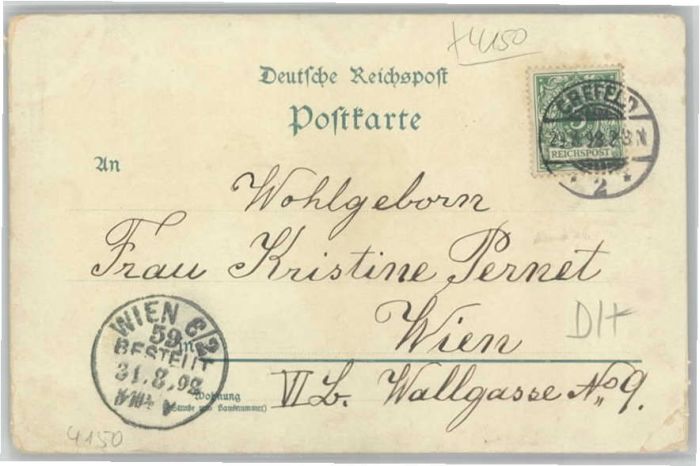 +4150
Deutsche Reichspost
Postkarte
CREFELD
5
REICHSPOST
* 2 *
An
Wohlgeborn
Frau Kristine Pernet
in Wien
D/+
WIEN 6/2
59
BESTELLT
31.8.98
Wohnung
(Straße und Hausnummer)
VI L. Wallgasse No 9.
4150